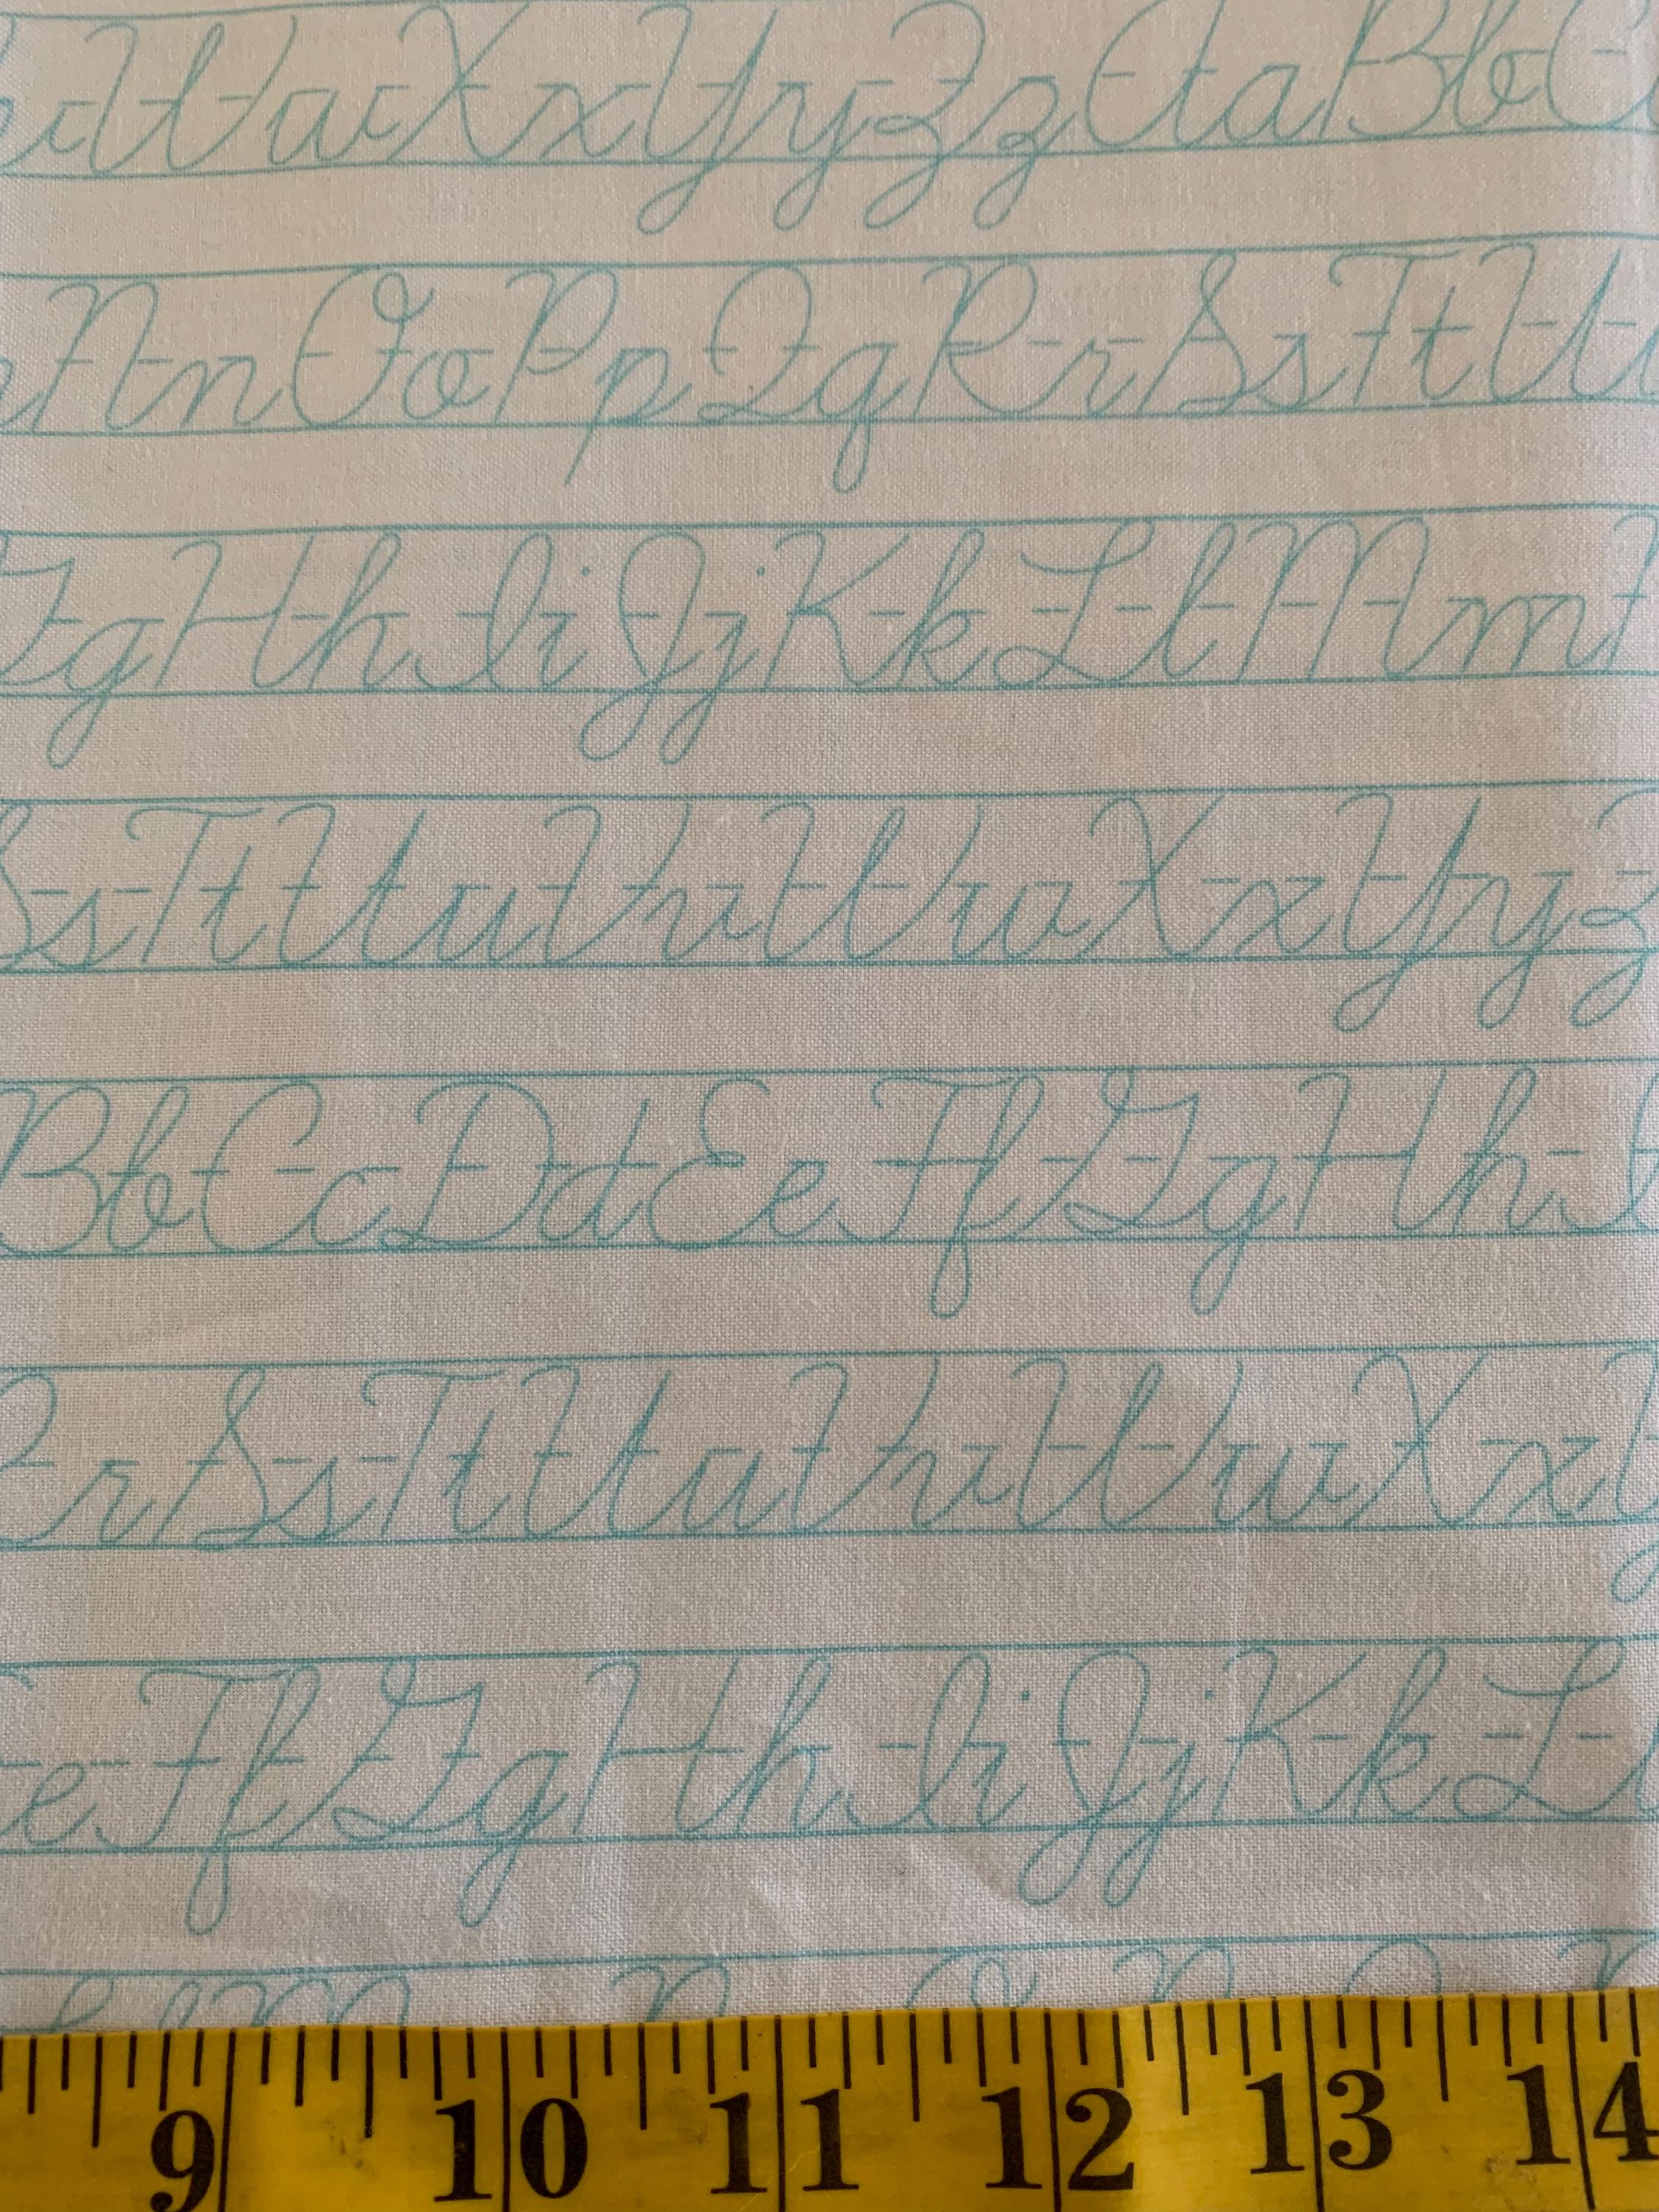 v Ww Xx Yy Zz Aa Bb C
Nn Oo Pp Qq Rr Ss Tt U
Gg Hh Ii Jj Kk Ll Mm
Ss Tt Uu Vv Ww Xx Yy Z
Bb Cc Dd Ee Ff Gg Hh I
Rr Ss Tt Uu Vv Ww Xx Y
e Ff Gg Hh Ii Jj Kk L
9 10 11 12 13 14